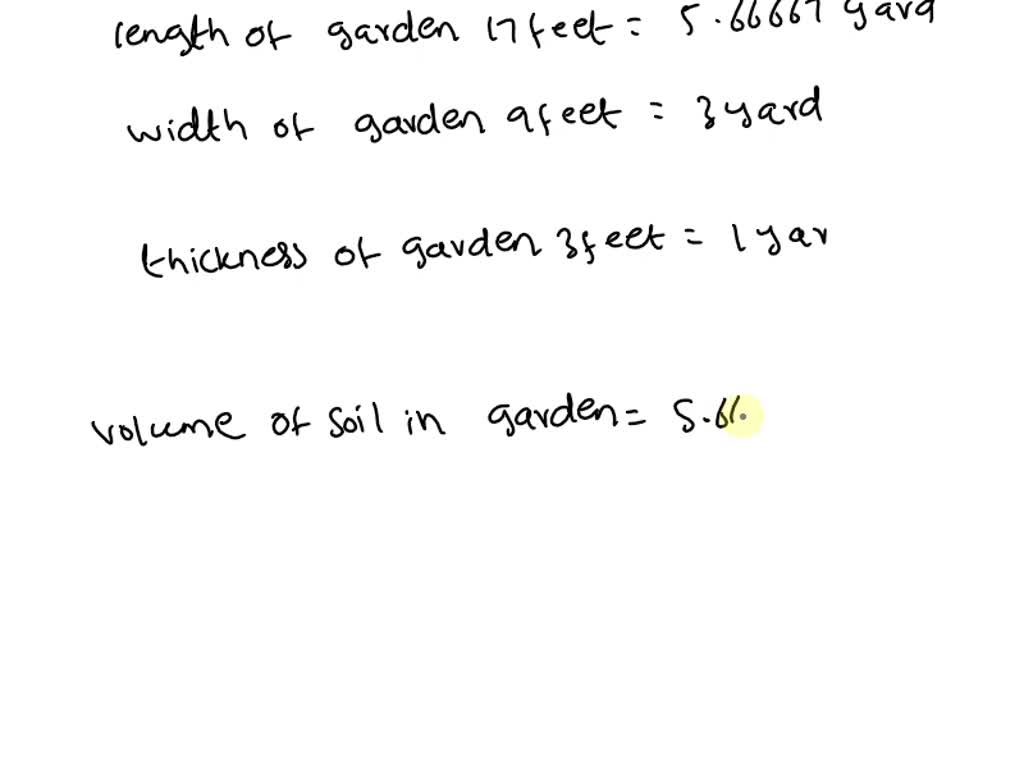 length of garden 17 feet = 5.66667 yard
width of garden 9 feet = 3 yard
thickness of garden 3 feet = 1 yar
volume of soil in garden = 5.66